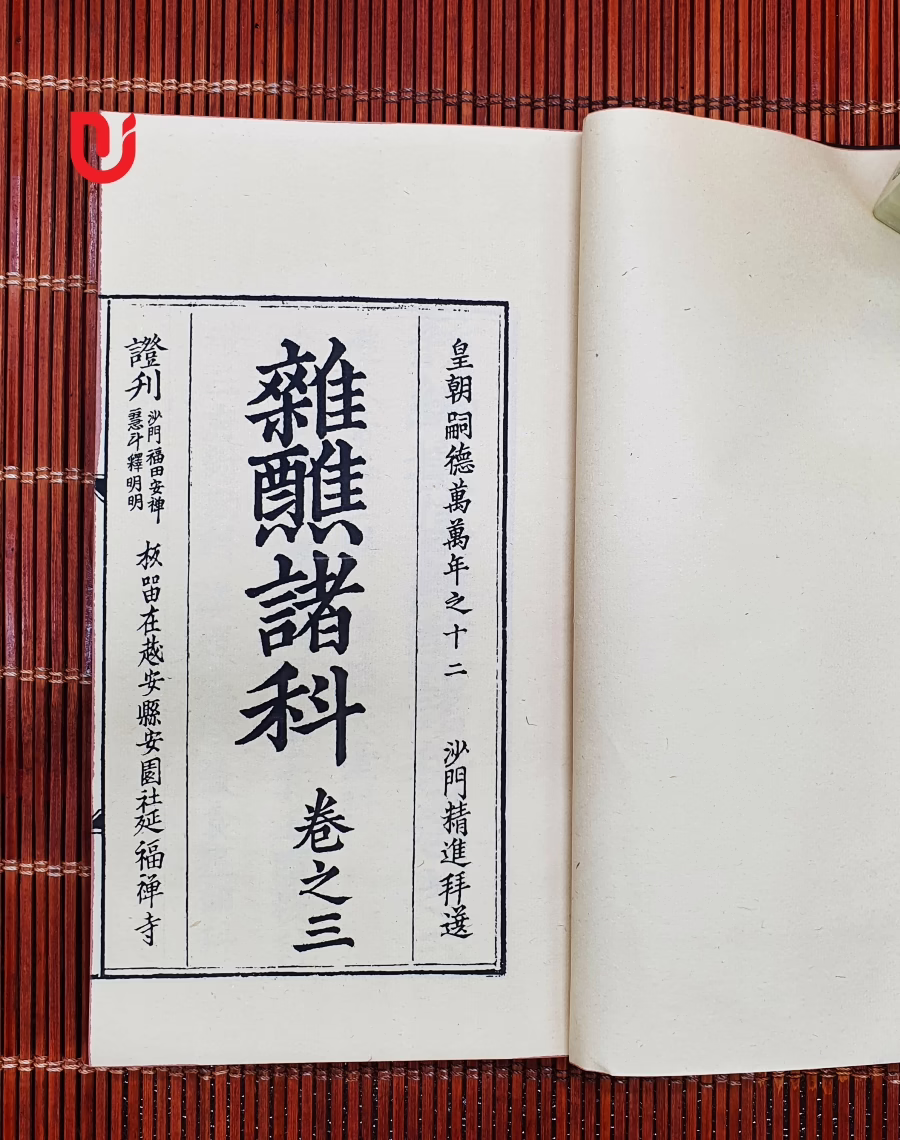 皇朝嗣德萬萬年之十二
沙門精進拜選
雜醮諸科
卷之三
證刋
沙門福田安禅
慧斗釋明明
板留在越安縣安園社延福禅寺